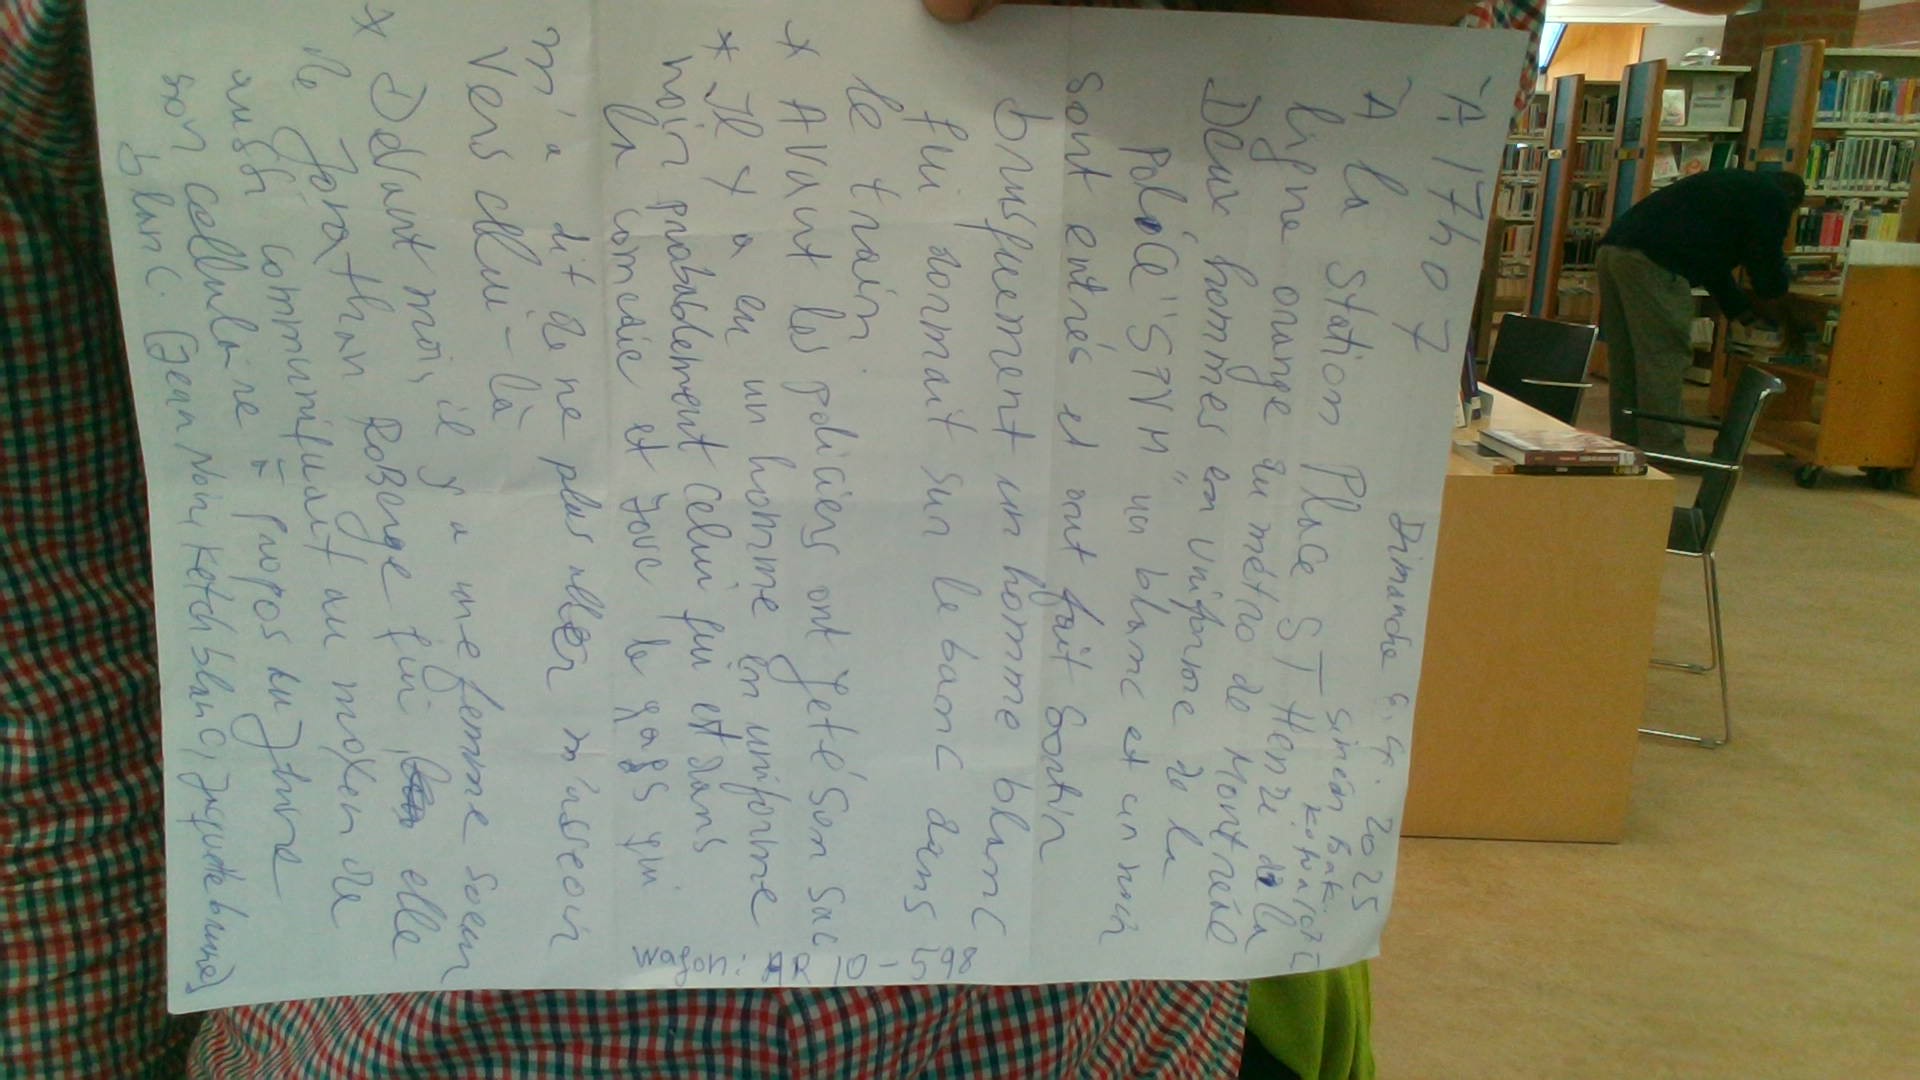 Dimanche 6. 4. 2025
À 17h07
À la station Place ST Henri de la
ligne orange du métro de Montréal
Deux hommes en uniforme de la
Police "STM" un blanc et un noir
sont entrés et ont fait sortir
brusquement un homme blanc
qui dormait sur le banc dans
le train
* Avant les policiers ont jeté son sac
* Il y a eu un homme en uniforme
noir probablement celui qui est dans
la comédie et joue le gags qui
m'a dit de ne plus aller m'asseoir
vers celui-là
* Devant moi, il y a une femme soeur
de Jonathan Roberge qui, elle
aussi communiquait au moyen de
son cellulaire à propos du
blanc. (Jean Noir, Ketch blanc, Jaquette brune)
wagon: 10-598